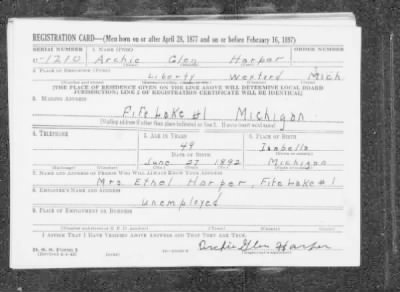 REGISTRATION CARD—(Men born on or after April 28, 1877 and on or before February 16, 1897)
SERIAL NUMBER 1. NAME (Print) ORDER NUMBER
U-1210 Archie Glen Harper
2. PLACE OF RESIDENCE (Print)
Liberty Wexford Mich
[THE PLACE OF RESIDENCE GIVEN ON THE LINE ABOVE WILL DETERMINE LOCAL BOARD
JURISDICTION; LINE 2 OF REGISTRATION CERTIFICATE WILL BE IDENTICAL]
3. MAILING ADDRESS
Fife Lake #1 Michigan
[Mailing address if other than place indicated on line 2. If same insert word same]
4. TELEPHONE 5. AGE IN YEARS 6. PLACE OF BIRTH
49 Isabella
DATE OF BIRTH
June 27 1892 Michigan
7. NAME AND ADDRESS OF PERSON WHO WILL ALWAYS KNOW YOUR ADDRESS
Mrs. Ethel Harper, Fife Lake #1
8. EMPLOYER'S NAME AND ADDRESS
Unemployed
9. PLACE OF EMPLOYMENT OR BUSINESS
I AFFIRM THAT I HAVE VERIFIED ABOVE ANSWERS AND THAT THEY ARE TRUE.
D. S. S. Form 1
Archie Glen Harper